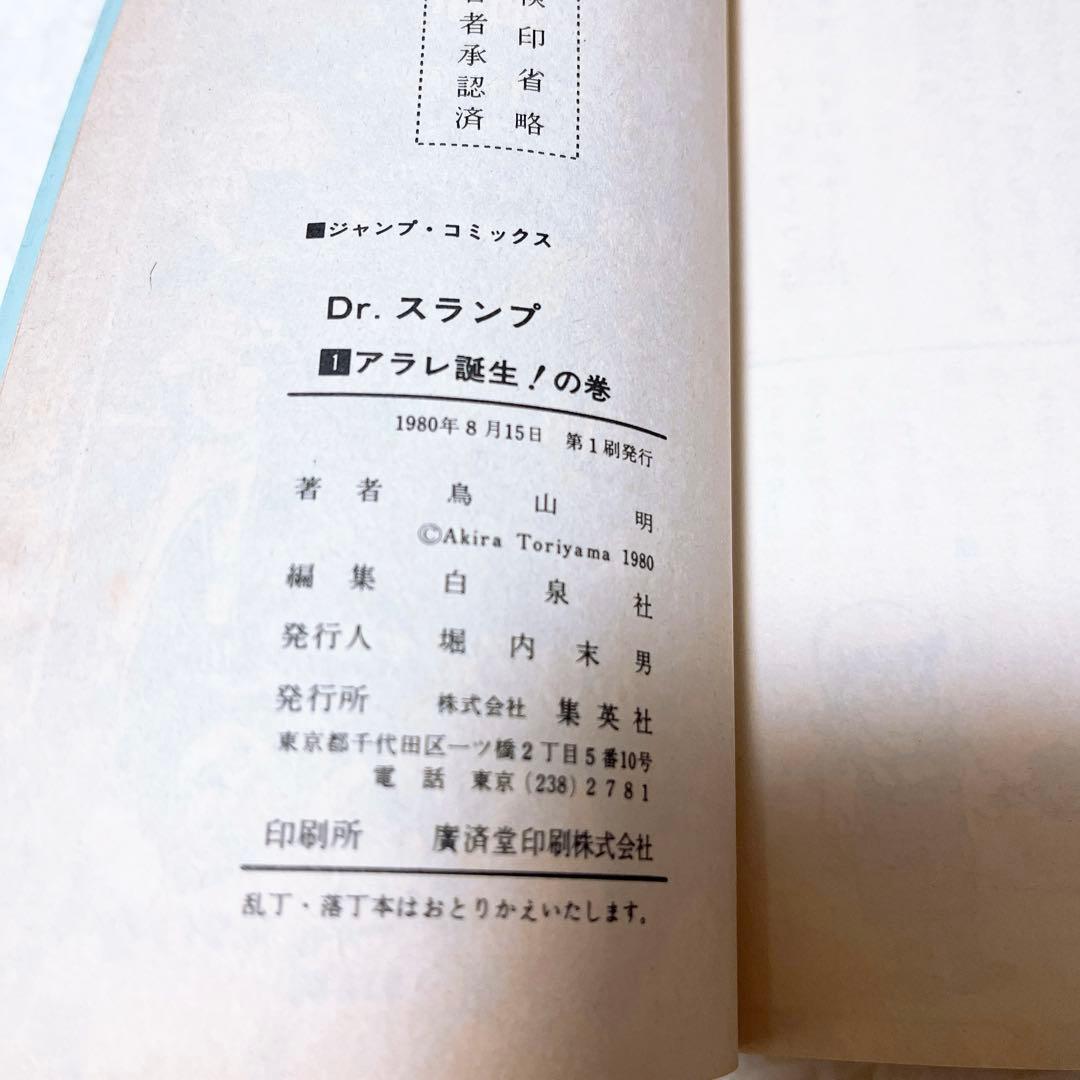 検印省略
者承認済
■ジャンプ・コミックス
Dr. スランプ
1アラレ誕生!の巻
1980年8月15日 第1刷発行
著者 鳥山明
©Akira Toriyama 1980
編集 白泉社
発行人 堀内末男
発行所 株式会社 集英社
東京都千代田区一ツ橋2丁目5番10号
電話 東京(238)2781
印刷所 廣済堂印刷株式会社
乱丁・落丁本はおとりかえいたします。